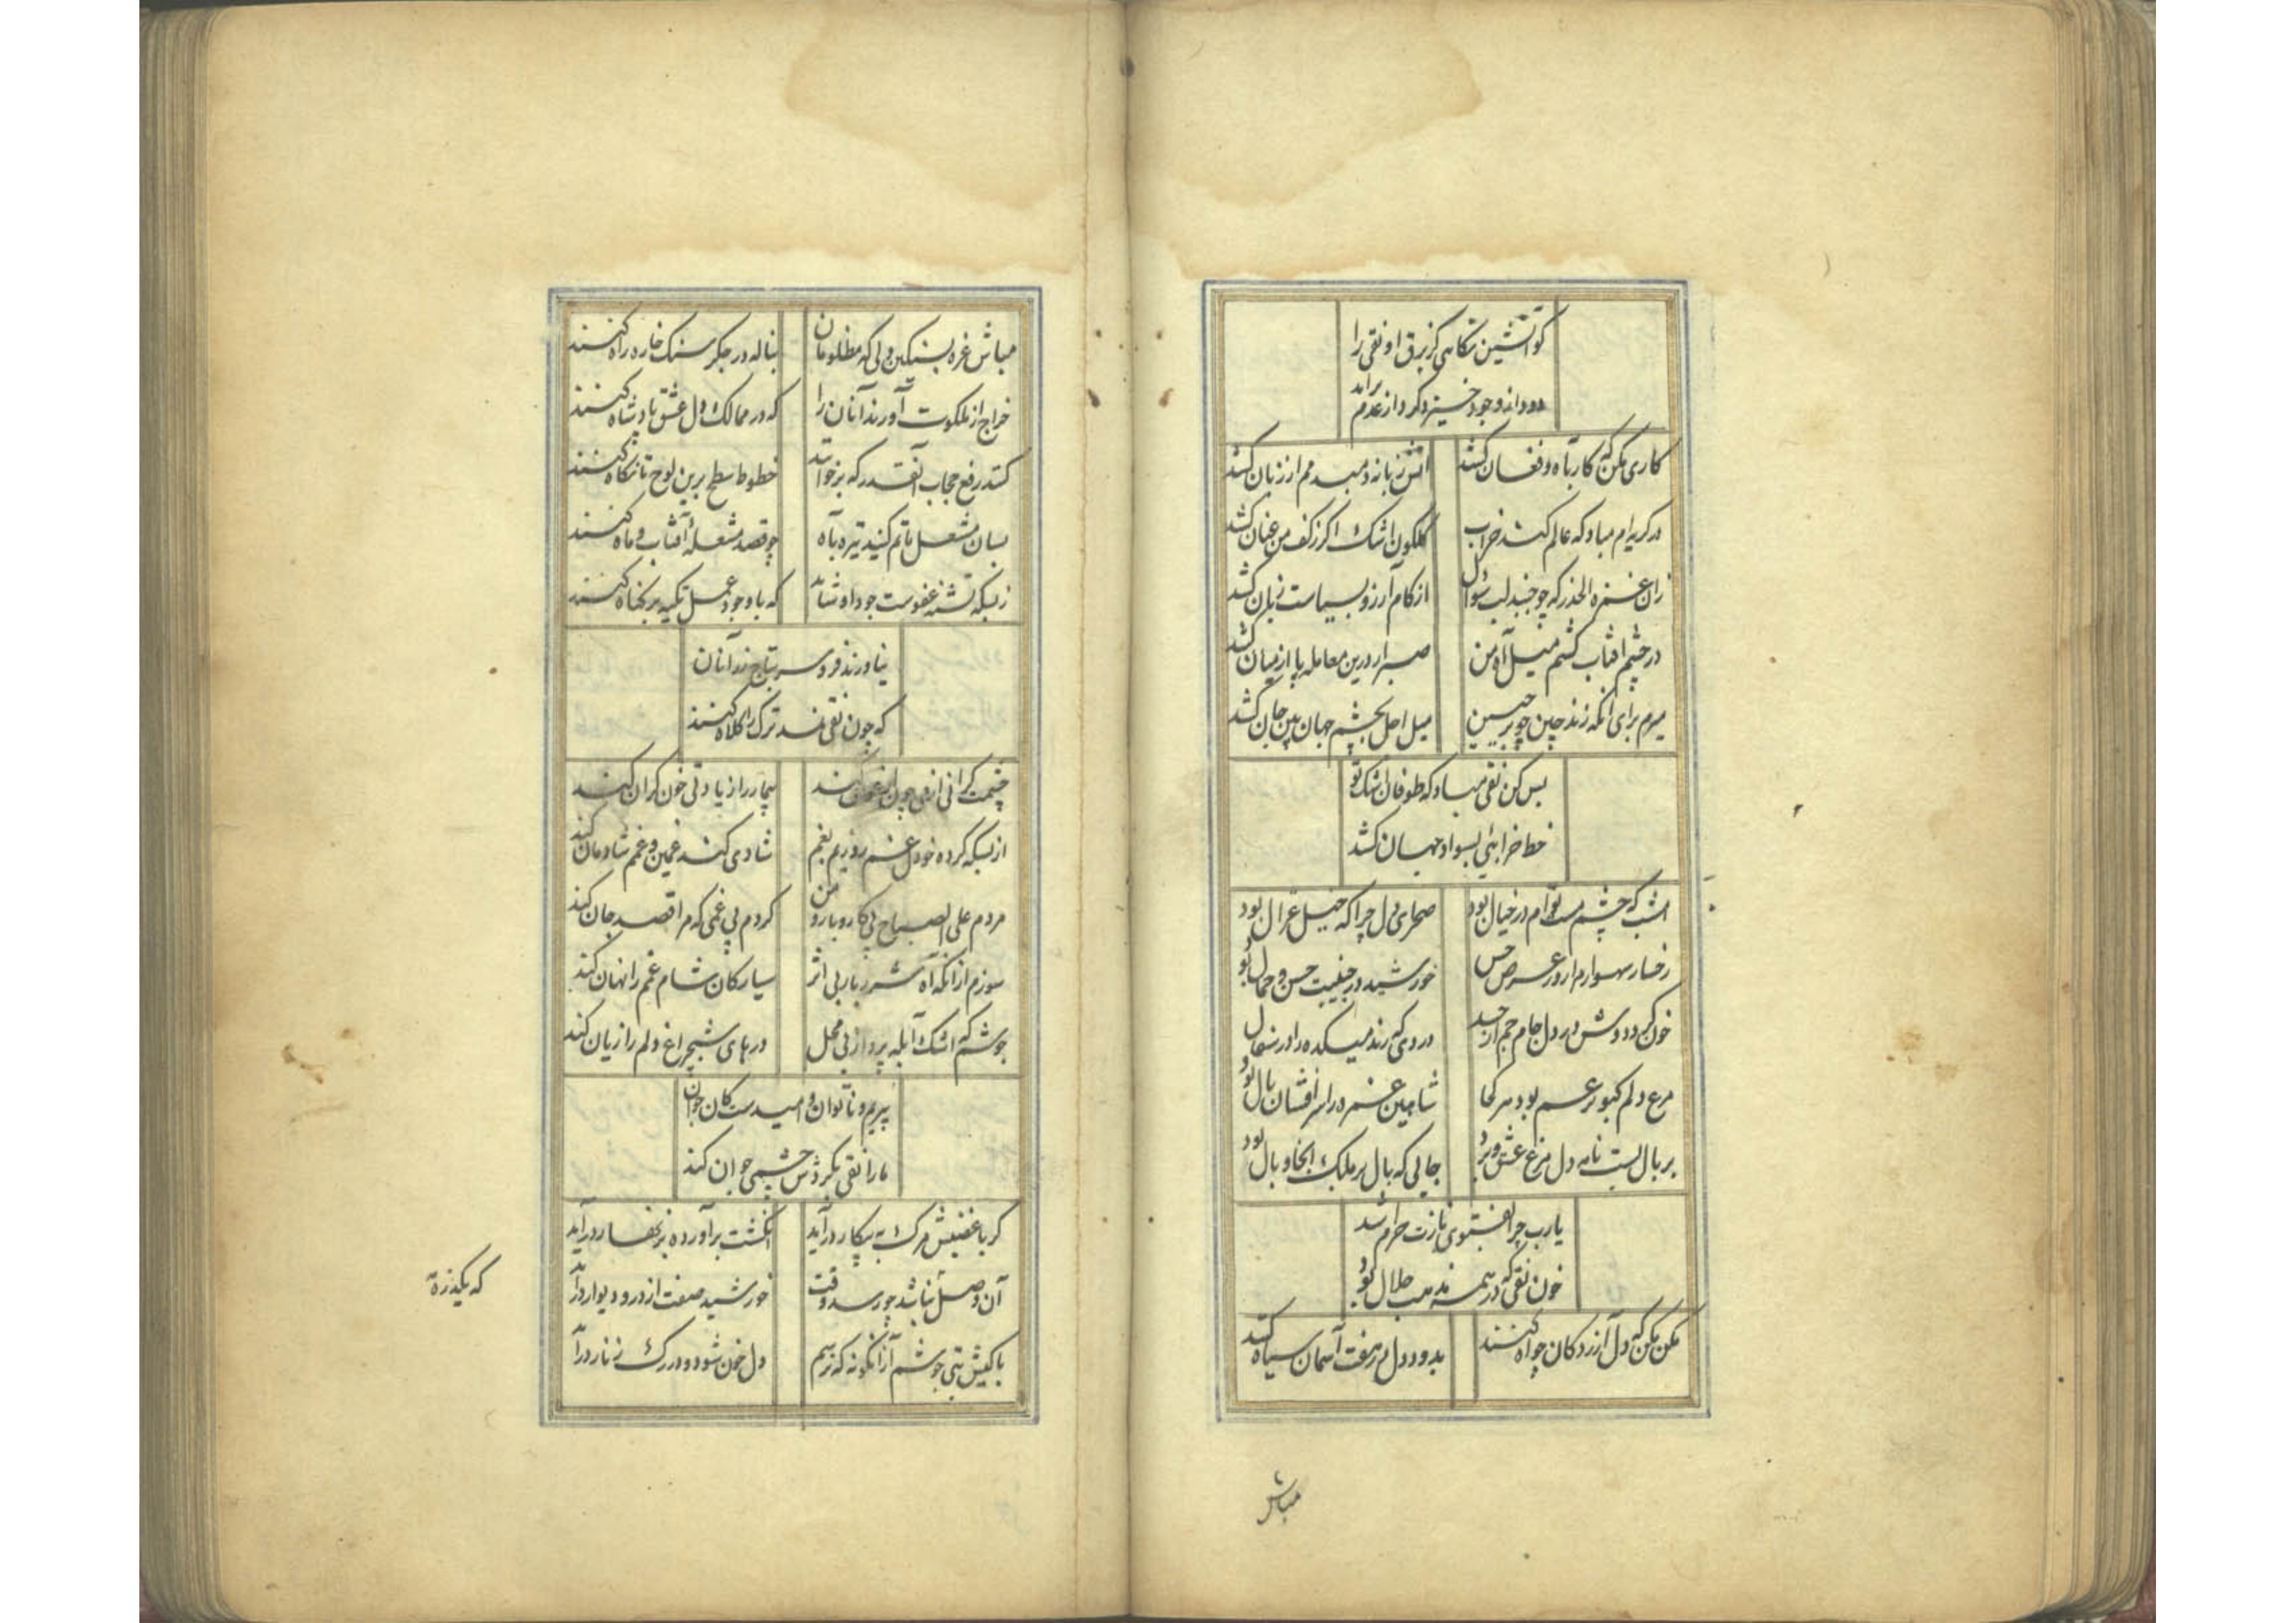 کو آتشین نگاهی کز برق او نقی را
دود از وجود خیزد گرد از عدم برآید
کاری مکن که کار بآه و فغان کشد
آتش زبانه دمبدمم از زبان کشد
در گریه‌ام مباد که عالم کشد خراب
گلگون اشک اگر ز کف من عنان کشد
زان غمزه الحذر که چو جنبد لب سؤال
از کام آرزو بسیاست زبان کشد
در چشم آفتاب کشم میل آه من
صبر ار درین معامله پا از میان کشد
میرم برای آنکه زند چین چو بر جبین
میل اجل بچشم جهان بین جان کشد
بس کن نقی مباد که طوفان اشک تو
خط خرابئی بسواد جهان کشد
امشب که چشم مست توام در خیال بود
صحرای دل چراگه خیل غزال بود
رخسار سهوارم ار در عرض حسن
خورشید در جنیبت حسن و جمال بود
خون کرد دوش در دل جام جم از حسد
دردی که رند میکده را در سفال
مرغ دلم کبوتر غم بود هر کجا
شاهین غمزه در سر افشان بال بود
بر بال بست نامه دل مرغ عشق و برد
جائی که بال بر ملک آنجا وبال بود
یارب چرا بفتوی نازت حرام شد
خون نقی که در همه مذهب حلال بود
مکن مکن که دل آزردگان چو آه کنند
بدود دل رخ هفت آسمان سیاه کنند
مباش
مباش غره بسنگین دلی که مظلومان
بناله در جگر سنگ خاره راه کنند
خراج از ملکوت آورند آنان را
که در ممالک دل عشق پادشاه کنند
کنند رفع حجاب آنقدر که برخوانند
خطوط سطح برین لوح تا نگاه کنند
بسان مشعل ماتم کنند تیره بآه
چو قصد مشعلهٔ آفتاب و ماه کنند
ز بسکه تشنه عفوست جود او شاید
که با وجود عمل تکیه بر گناه کنند
نیاورند فرو سر بتاج زر آنان
که چون نقی نمد ترک را کلاه کنند
چشمت گرانی از می چون ارغوان کند
بیمار را زیادتی خون گران کند
از بسکه کرده خو دل غم روزیم بغم
شادی کند غمین و غمم شادمان کند
مردم علی الصباح پی کاروبار و من
گردم پی غمی که مرا قصد جان کند
سوزم از آنکه آه شرر بار بی اثر
سیارگان شام غمم را نهان کند
جوشم که اشک آبله پرداز بی محل
درهای شبچراغ دلم را زیان کند
پیریم و ناتوان و امیدست کان جوان
ما را نقی بگردش چشمی جوان کند
گر با غضبش مرگ به پیکار درآید
انگشت برآورده بزنهار درآید
آن وصل نباشد چو رسد وقت
خورشید صفت از در و دیوار درآید
با کیش بتی جوشم از آنگونه که ترسم
دل خون شود و در رگ زنار درآید
که یکذره